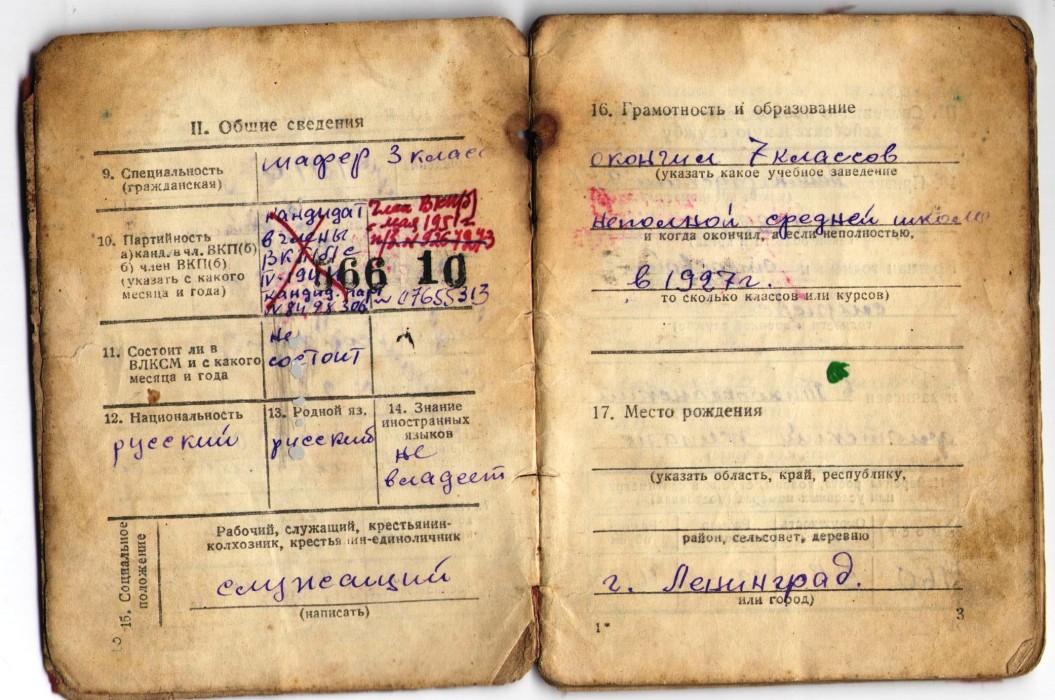 II. Общие сведения
9. Специальность
(гражданская)
шофер 3 класс
10. Партийность
а) канд. в чл. ВКП(б)
б) член ВКП(б)
(указать с какого
месяца и года)
кандидат
в члены
ВКП(б) с
член ВКП(б)
866 10
07655313
11. Состоит ли в
ВЛКСМ и с какого
месяца и года
не
состоит
12. Национальность
русский
13. Родной яз.
русский
14. Знание
иностранных
языков
не
владеет
15. Социальное
положение
Рабочий, служащий, крестьянин-
колхозник, крестьянин-единоличник
служащий
(написать)
16. Грамотность и образование
окончил 7 классов
(указать какое учебное заведение
неполной средней школы
и когда окончил, а если неполностью,
в 1927 г.
то сколько классов или курсов)
17. Место рождения
(указать область, край, республику,
район, сельсовет, деревню
г. Ленинград.
или город)
1*
3